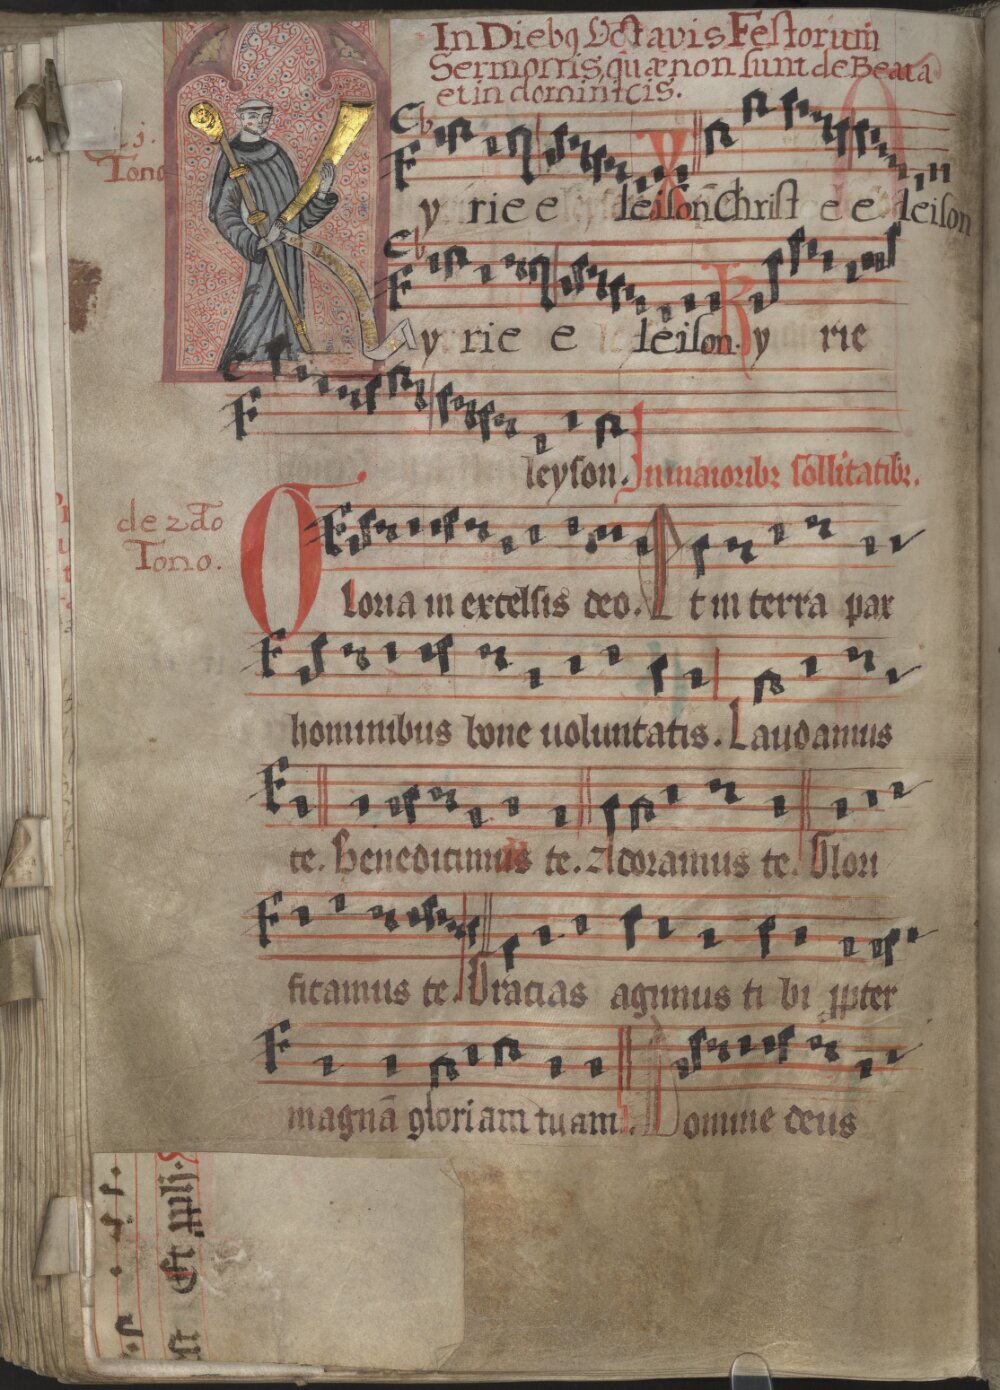 In Diebꝯ Octavis Festorum
Sermonis, quæ non sunt de Beata
et in dominicis.
Tono
y rie e leison Christ e e leison
y rie e leison. y rie
leyson. In maioribꝫ sollitatibꝫ.
de 2do
Tono.
Gloria in excelsis deo. Et in terra pax
hominibus bone uoluntatis. Laudamus
te. Benedicimus te. Adoramus te. Glori
ficamus te. Gracias agimus ti bi ꝓpter
magnā gloriam tuam. Domine deus
Et